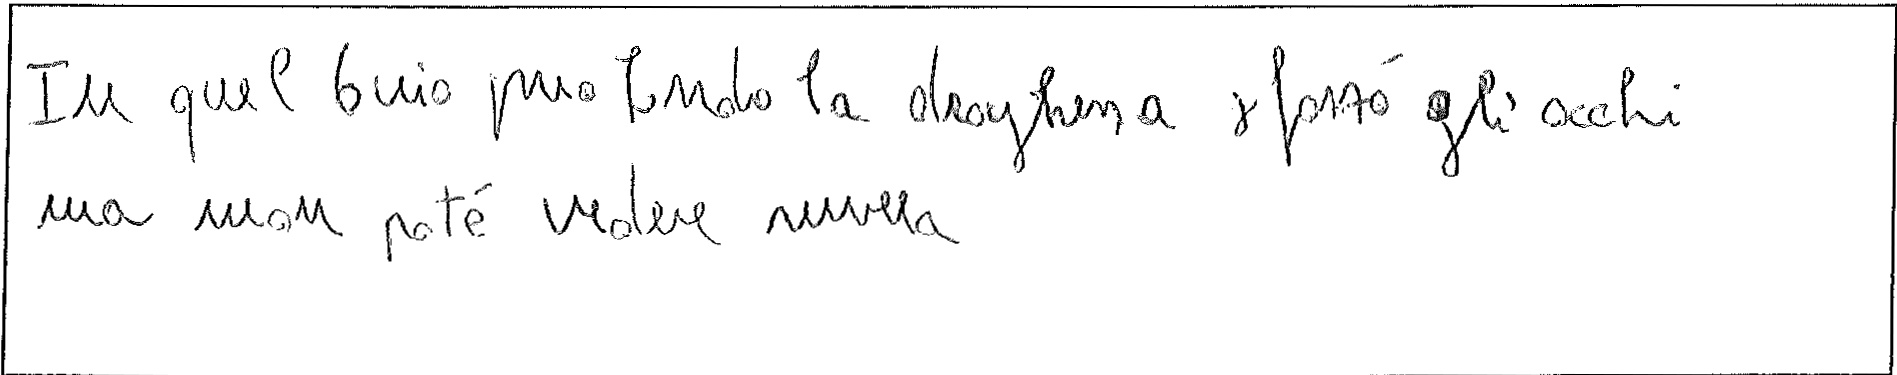 In quel buio profondo la draghessa sforzó gli occhi
ma non poté vedere